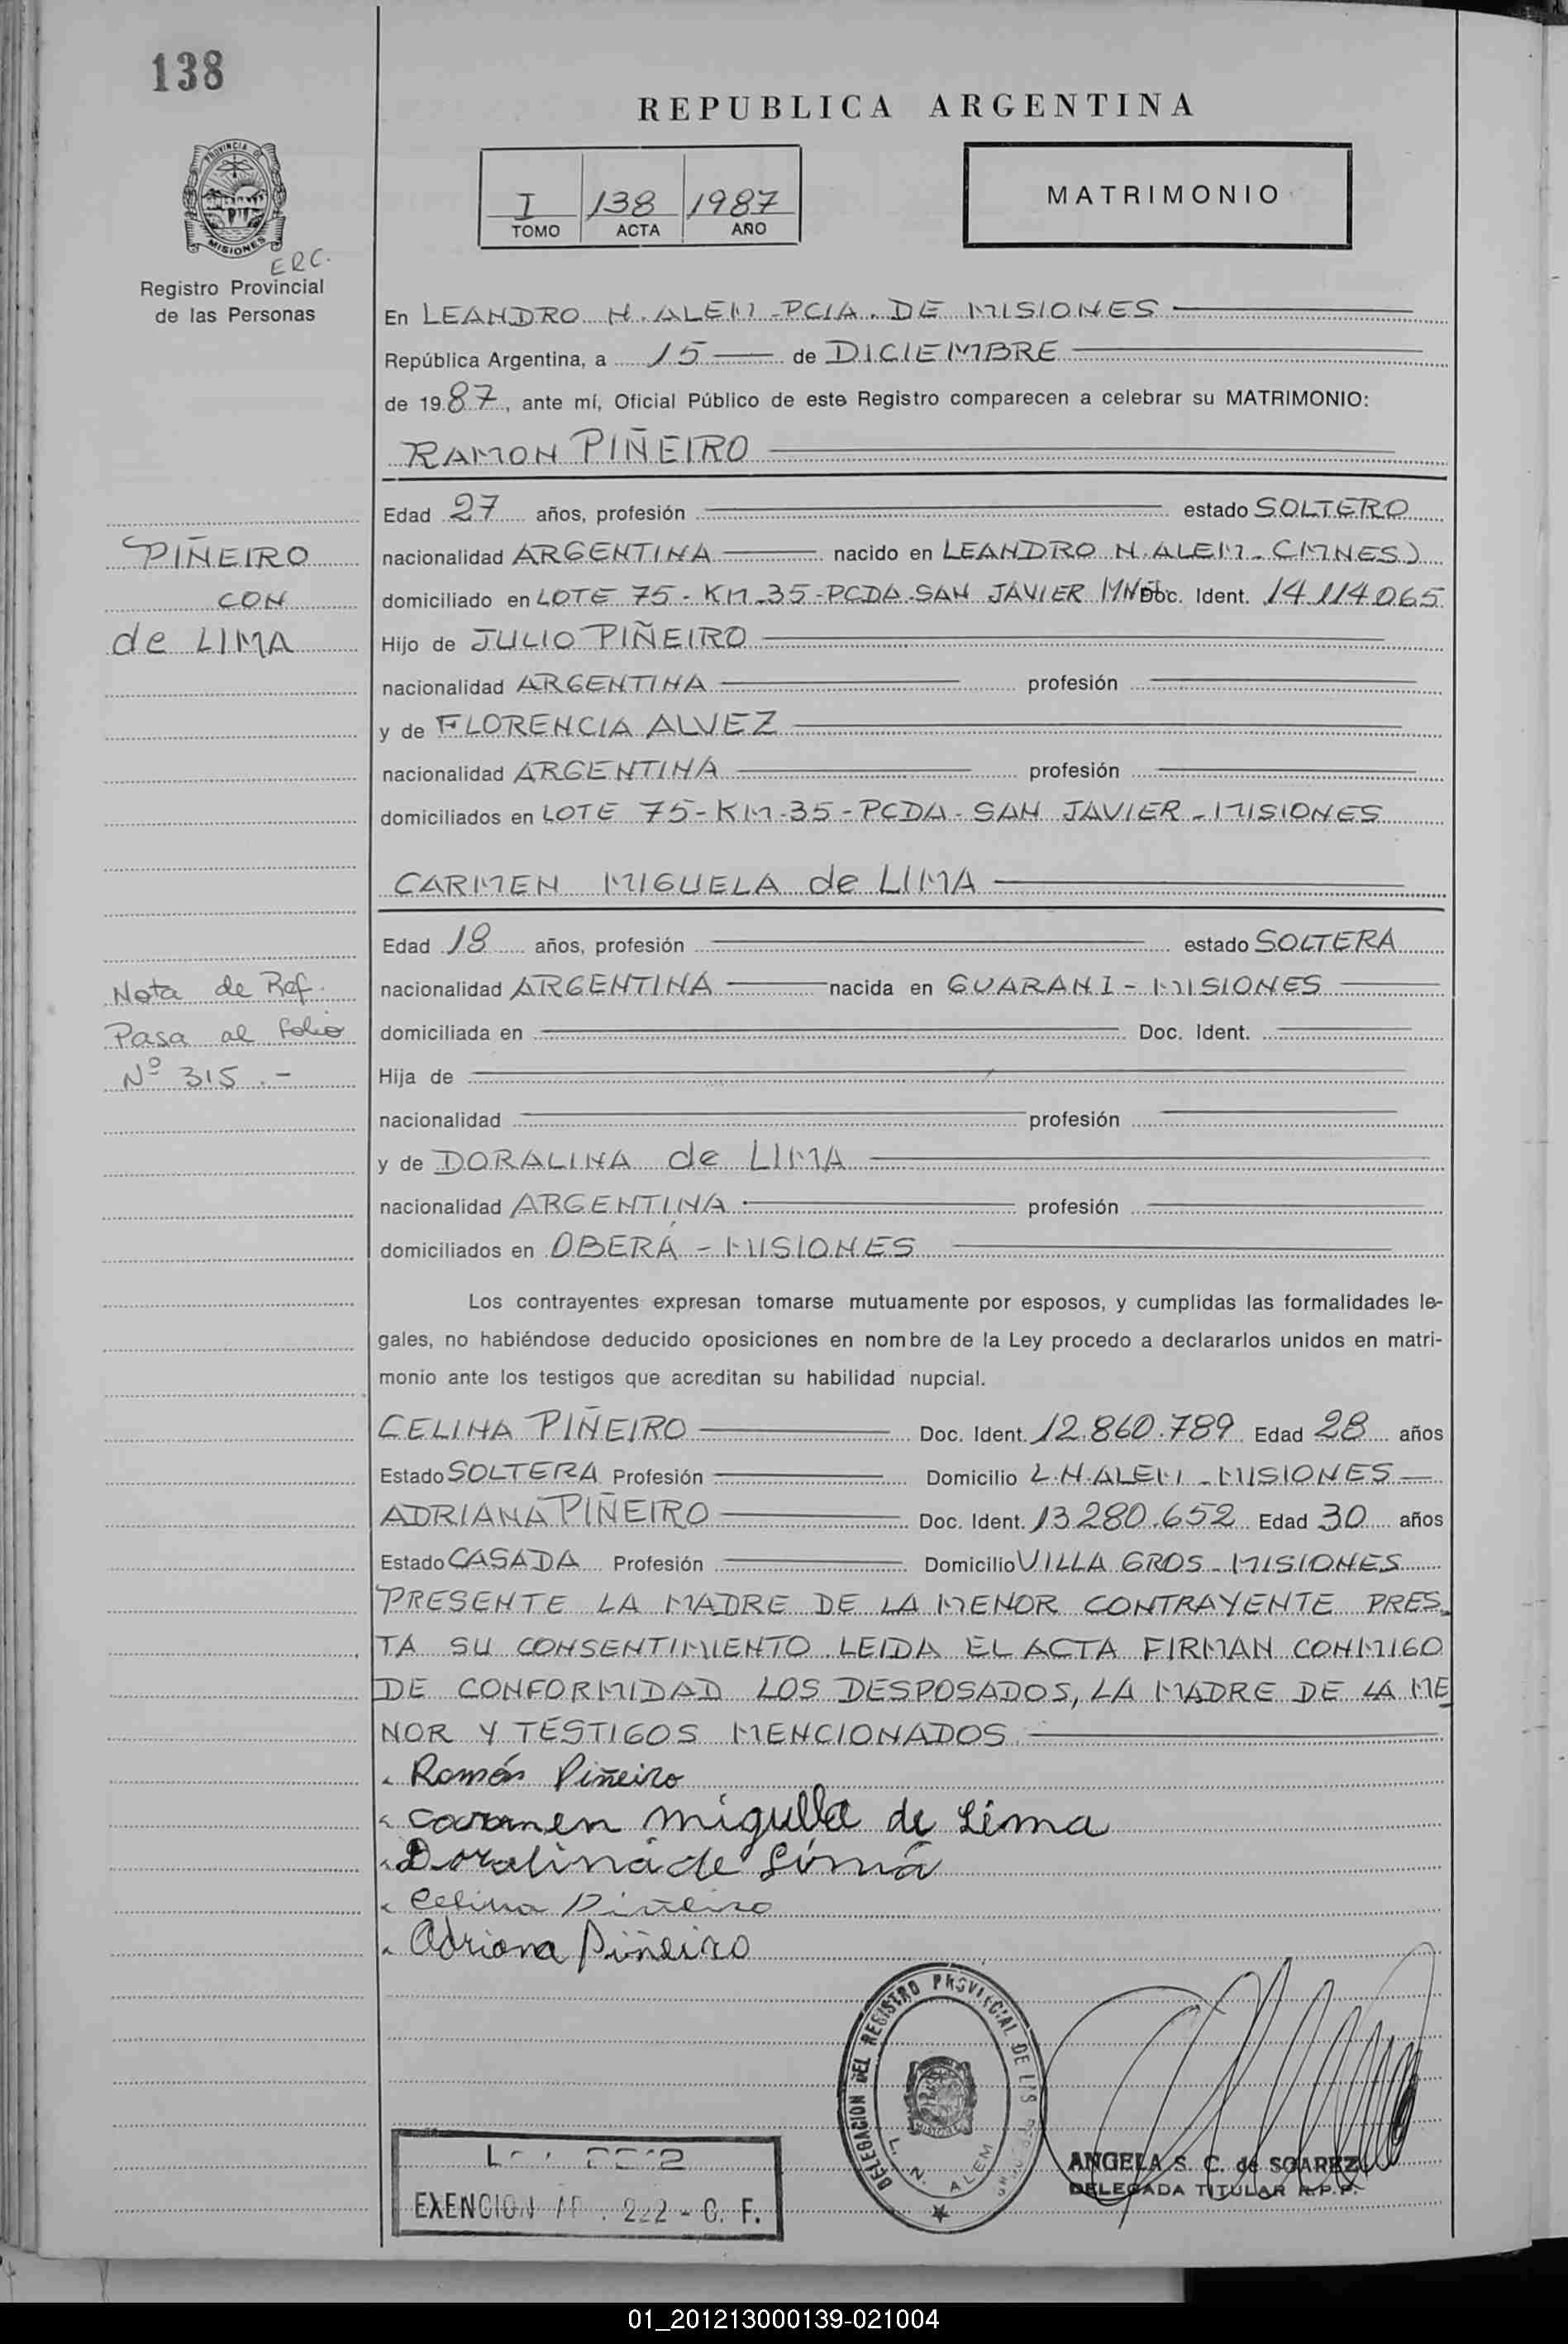 138
REPUBLICA ARGENTINA
I 138 1987
TOMO ACTA AÑO
MATRIMONIO
PROVINCIA DE MISIONES
ERC.
Registro Provincial
de las Personas
En LEANDRO N. ALEM - PCIA. DE MISIONES
República Argentina, a 15 de DICIEMBRE
de 1987, ante mí, Oficial Público de este Registro comparecen a celebrar su MATRIMONIO:
RAMON PIÑEIRO
Edad 27 años, profesión estado SOLTERO
PIÑEIRO
CON
de LIMA
nacionalidad ARGENTINA nacido en LEANDRO N. ALEM - (MNES)
domiciliado en LOTE 75 - KM-35-PCDA-SAN JAVIER MNES Doc. Ident. 14.114.065
Hijo de JULIO PIÑEIRO
nacionalidad ARGENTINA profesión
y de FLORENCIA ALVEZ
nacionalidad ARGENTINA profesión
domiciliados en LOTE 75-KM-35-PCDA-SAN JAVIER-MISIONES
CARMEN MIGUELA de LIMA
Edad 18 años, profesión estado SOLTERA
Nota de Ref.
Pasa al folio
Nº 315.-
nacionalidad ARGENTINA nacida en GUARANI - MISIONES
domiciliada en Doc. Ident.
Hija de
nacionalidad profesión
y de DORALINA de LIMA
nacionalidad ARGENTINA profesión
domiciliados en OBERÁ - MISIONES
Los contrayentes expresan tomarse mutuamente por esposos, y cumplidas las formalidades le-
gales, no habiéndose deducido oposiciones en nombre de la Ley procedo a declararlos unidos en matri-
monio ante los testigos que acreditan su habilidad nupcial.
CELINA PIÑEIRO Doc. Ident. 12.860.789 Edad 28 años
Estado SOLTERA Profesión Domicilio L.N.ALEM - MISIONES
ADRIANA PIÑEIRO Doc. Ident. 13280.652 Edad 30 años
Estado CASADA Profesión Domicilio VILLA GROS - MISIONES
PRESENTE LA MADRE DE LA MENOR CONTRAYENTE PRES-
TA SU CONSENTIMIENTO. LEIDA EL ACTA FIRMAN CONMIGO
DE CONFORMIDAD LOS DESPOSADOS, LA MADRE DE LA ME
NOR Y TESTIGOS MENCIONADOS
Ramón Piñeiro
Carmen miguela de Lima
Doralina de Lima
Celina Piñeiro
Adriana Piñeiro
DELEGACION DEL REGISTRO PROVINCIAL DE LAS
L. N. ALEM
ANGELA S. C. de SOAREZ
DELEGADA TITULAR R.P.P.
EXENCION 222 - C. F.
01_201213000139-021004